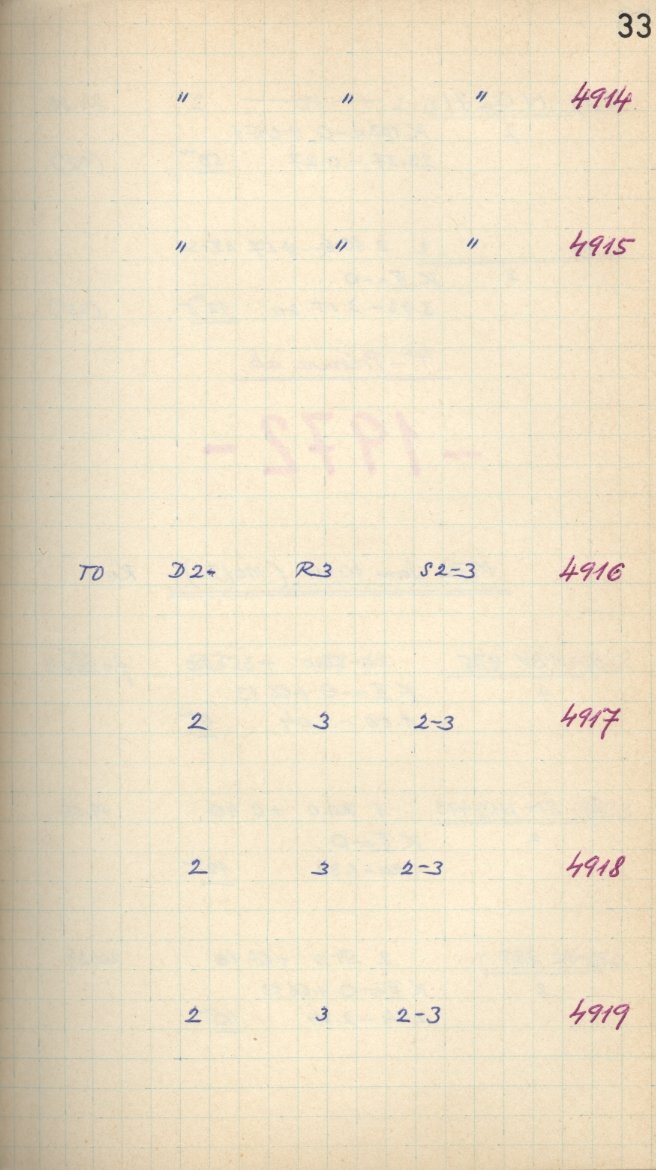 33
" " " 4914
" " " 4915
TO D2- R3 S2-3 4916
2 3 2-3 4917
2 3 2-3 4918
2 3 2-3 4919